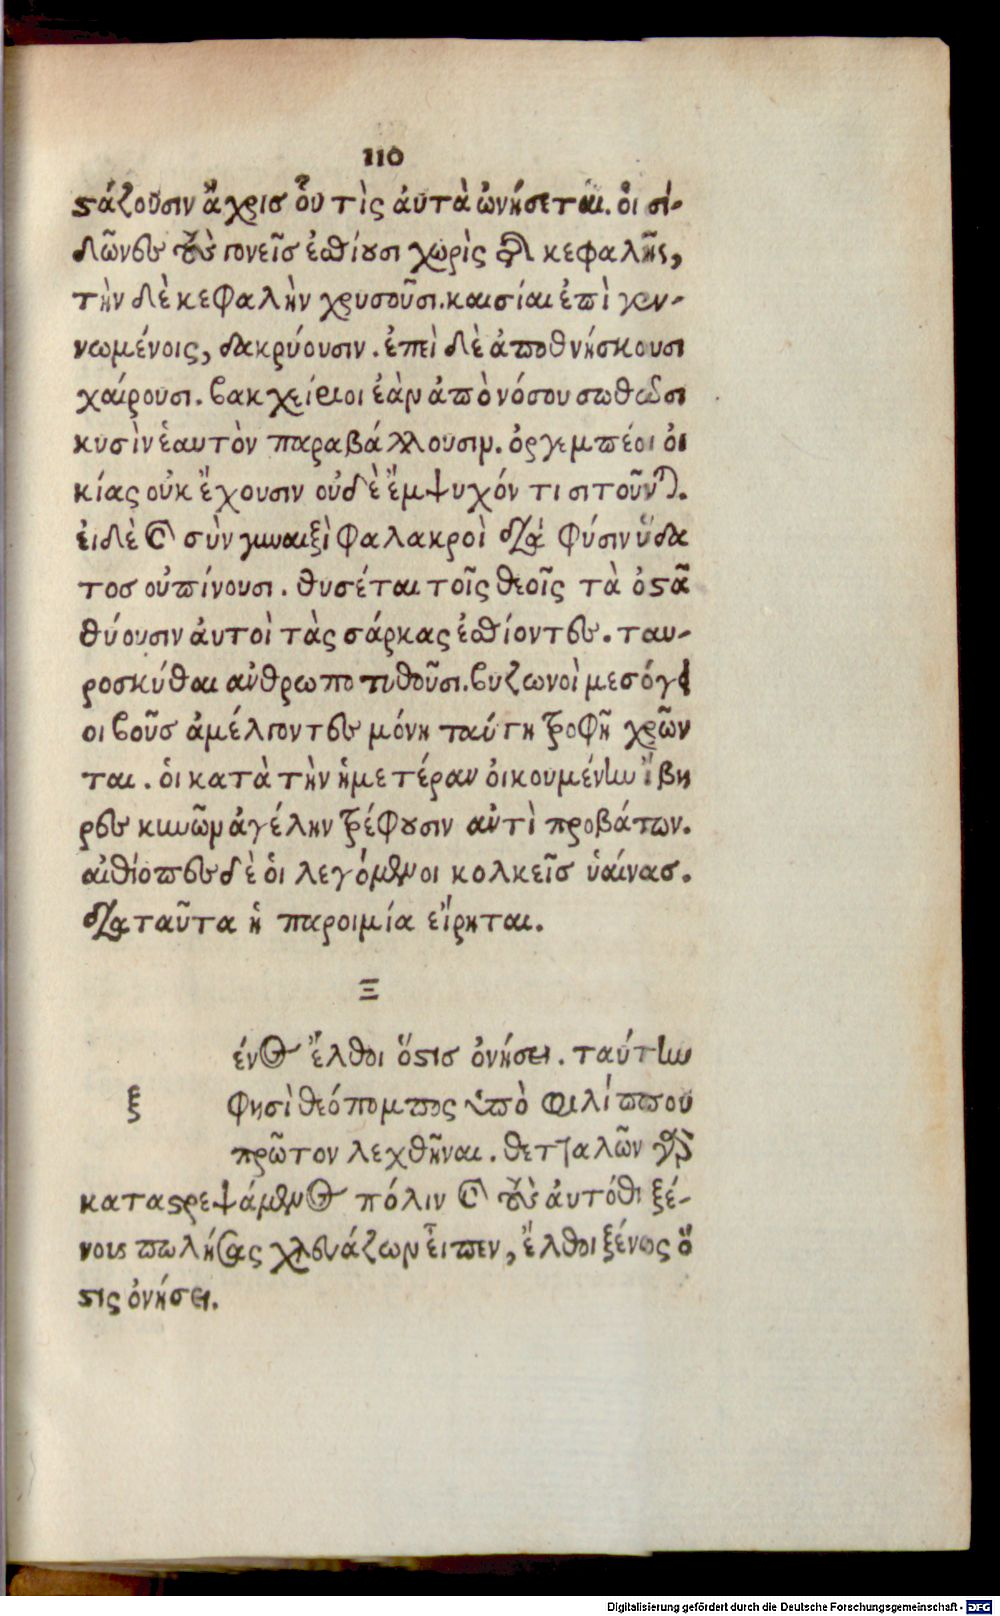 110
ϛάζουσιν ἄχρισ οὗ τὶς ἀυτὰ ὠνήσεται. ὁι σί-
δῶνες τοὺς γονεῖσ ἐσθίουσι χωρὶς τῆς κεφαλῆς,
τὴν δὲ κεφαλὴν χρυσοῦσι. καυσίαι ἐπὶ γεν-
νωμένοις, δακρύουσιν. ἐπεὶ δὲ ἀποθνήσκουσι
χαίρουσι. βακχείριοι ἐὰν ἀπὸ νόσου σωθῶσι
κυσὶν ἑαυτὸν παραβάλλουσιν. ὀργεμπέοι ὀι
κίας οὐκ ἔχουσιν οὐδὲ ἔμψυχόν τι σιτοῦνται.
ἐιδὲ καὶ σὺν γυναιξὶ φαλακροὶ διὰ φύσιν ὕδα
τοσ οὐ πίνουσι. θυσέται τοῖς θεοῖς τὰ ὀϛᾶ
θύουσιν ἀυτοὶ τὰς σάρκας ἐσθίοντες. ταυ-
ροσκύθαι ἀνθρωποτυθοῦσι. βυζωνοὶ μεσόγει
οι βοῦσ ἀμέλγοντες μόνη ταύτη τροφῆ χρῶν
ται. ὁι κατὰ τὴν ἡμετέραν ὀικουμένην ἴβη
ρες κυνῶν ἀγέλην τρέφουσιν ἀντὶ προβάτων.
αἰθίοπες δὲ ὁι λεγόμενοι κολκεῖσ ὑαίνας.
διὰ ταῦτα ἡ παροιμία εἴρηται.
Ξ
ένος ἔλθοι ὅϛισ ὀνήσει. ταύτην
ξ φησὶ θεόπομπος ὑπὸ φιλίππου
πρῶτον λεχθῆναι. θετταλῶν γὰρ
καταϛρεψάμενος πόλιν καὶ τοὺς ἀυτόθι ξέ-
νουσ πωλήσας χλευάζων εἶπεν, ἔλθοι ξένος ὅ
ϛις ὀνήσει.
Digitalisierung gefördert durch die Deutsche Forschungsgemeinschaft - DFG